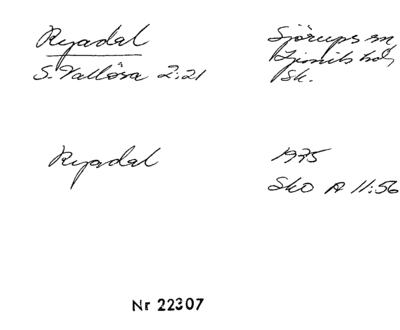 Ryadal
S. Vallösa 2:21
Sjörups sn
Ljunits hd,
Sk.
Ryadal
1975
SkO A 11:56
Nr 22307